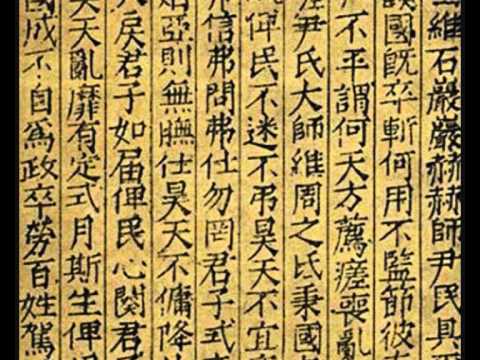 維石巖巖赫赫師尹民具
國既卒斬何用不監節彼
不平謂何天方薦瘥喪亂
尹氏大師維周之氏秉國
俾民不迷不弔昊天不宜
信弗問弗仕勿罔君子式
姻亞則無膴仕昊天不傭降
戾君子如屆俾民心闋君
昊天亂靡有定式月斯生俾
國成不自為政卒勞百姓駕